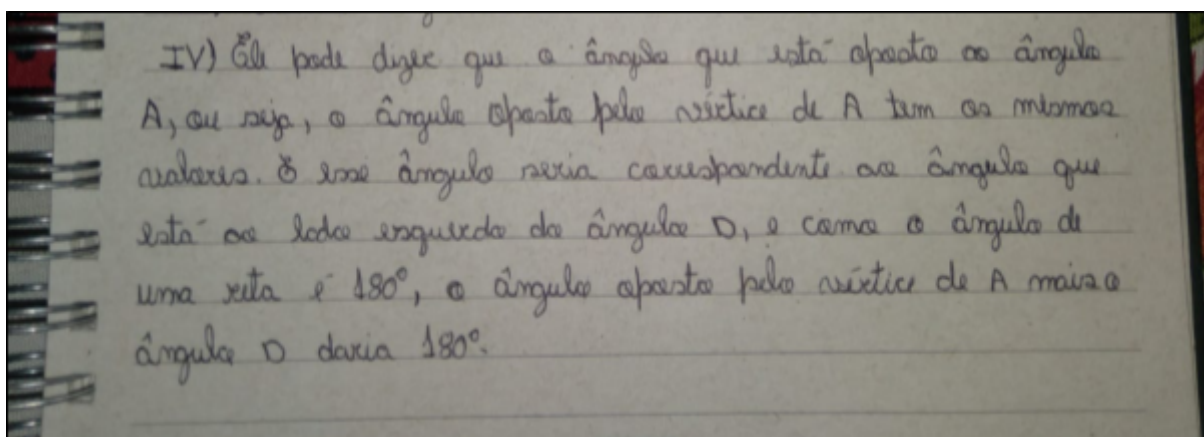 IV) Ele pode dizer que o ângulo que está oposto ao ângulo
A, ou seja, o ângulo oposto pelo vértice de A tem os mesmos
valores. E esse ângulo seria correspondente ao ângulo que
está ao lado esquerdo do ângulo D, e como o ângulo de
uma reta é 180°, o ângulo oposto pelo vértice de A mais o
ângulo D daria 180°.